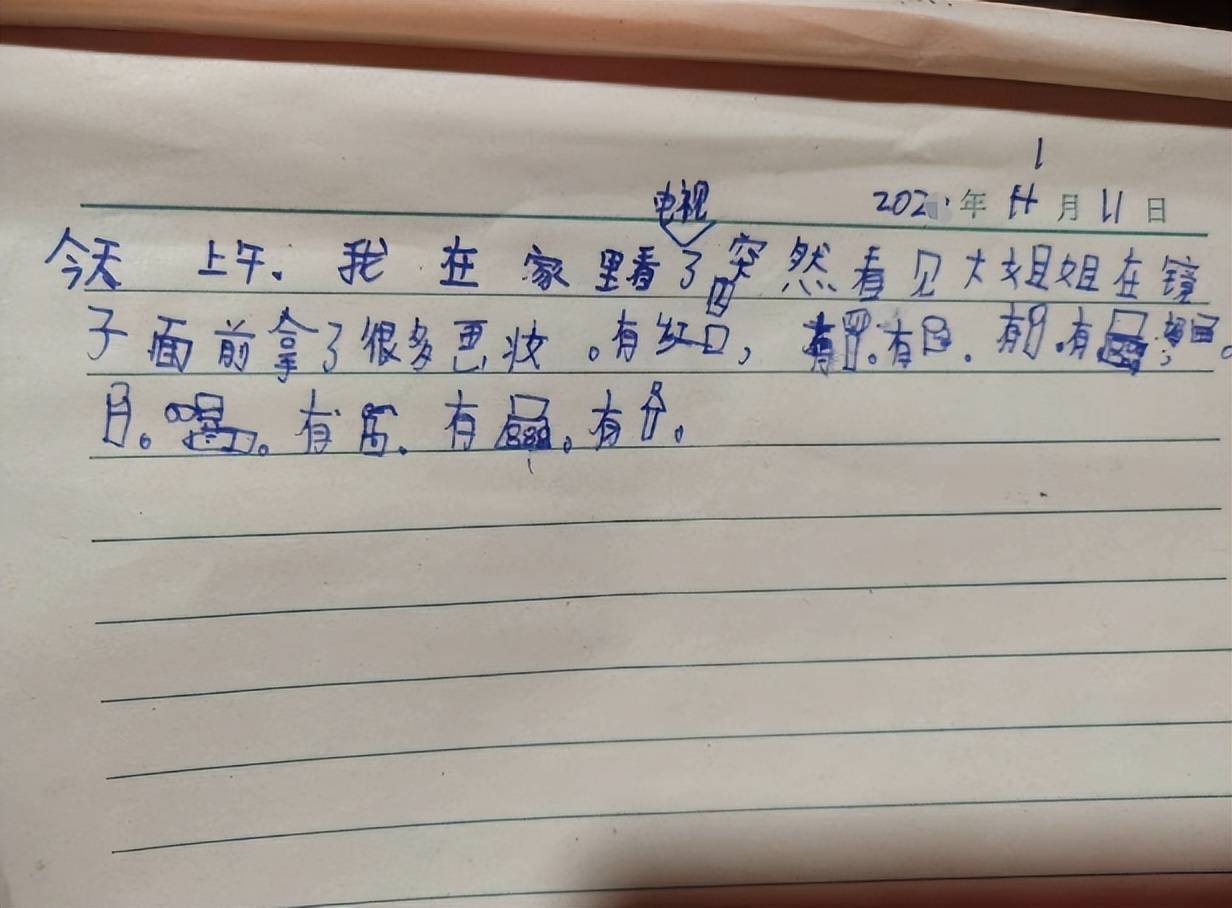 1
电视 202 年 月 11 日
今天 上午. 我 在 家里看了突然看见大姐姐在镜
子面前拿了很多巴妆。有红口, 有 。有 . 有 .有 , 。
。 。有 . 有 。有 。